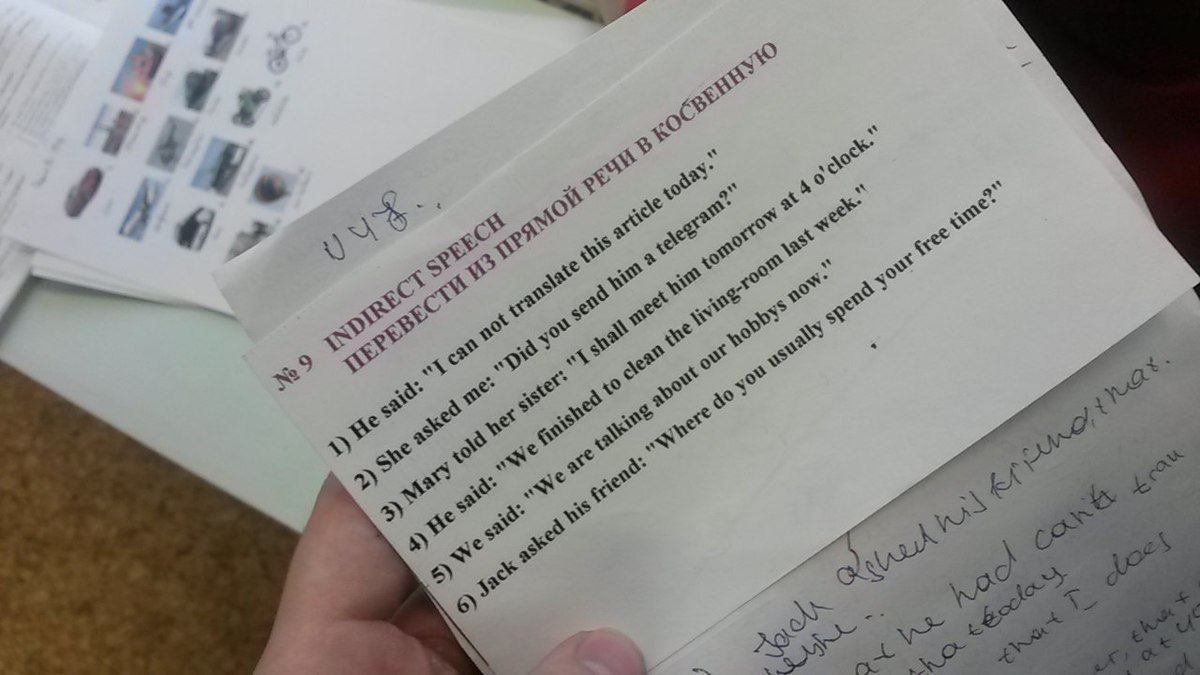 № 9 INDIRECT SPEECH
ПЕРЕВЕСТИ ИЗ ПРЯМОЙ РЕЧИ В КОСВЕННУЮ
1) He said: "I can not translate this article today."
2) She asked me: "Did you send him a telegram?"
3) Mary told her sister: "I shall meet him tomorrow at 4 o'clock."
4) He said: "We finished to clean the living-room last week."
5) We said: "We are talking about our hobbys now."
6) Jack asked his friend: "Where do you usually spend your free time?"
Jack asked his friend, that.
he had can't
today
that I does
that